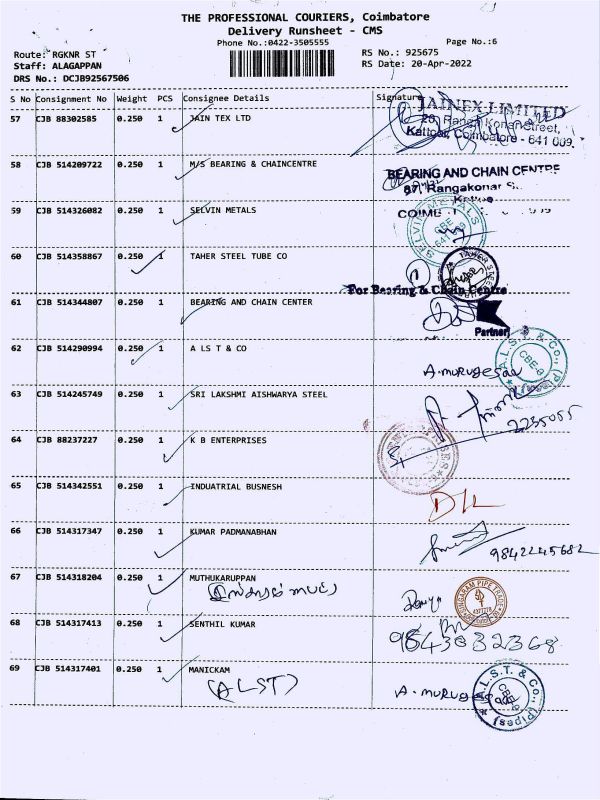 THE PROFESSIONAL COURIERS, Coimbatore
Delivery Runsheet - CMS
Phone No.:0422-3505555
Page No.:6
Route: RGKNR ST
RS No.: 925675
Staff: ALAGAPPAN
RS Date: 20-Apr-2022
DRS No.: DCJB92567506
S No Consignment No Weight PCS Consignee Details Signature
57 CJB 88302585 0.250 1 JAIN TEX LTD
JAINEX LIMITED
28, Rangai Konar Street,
Kattoor, Coimbatore - 641 009.
58 CJB 514209722 0.250 1 M/S BEARING & CHAINCENTRE
BEARING AND CHAIN CENTRE
87, Rangakonar S
59 CJB 514326082 0.250 1 SELVIN METALS
COIMB
SELVIN METALS
CBE
60 CJB 514358867 0.250 1 TAHER STEEL TUBE CO
61 CJB 514344807 0.250 1 BEARING AND CHAIN CENTER
For Bearing & Chain Centre
Partner
62 CJB 514290994 0.250 1 A LS T & CO
A. murugesan
A.L.S.T. & Co., (Pipes)
CBE-9
63 CJB 514245749 0.250 1 SRI LAKSHMI AISHWARYA STEEL
2235055
64 CJB 88237227 0.250 1 K B ENTERPRISES
65 CJB 514342551 0.250 1 INDUATRIAL BUSNESH
D/L
66 CJB 514317347 0.250 1 KUMAR PADMANABHAN
9842245682
67 CJB 514318204 0.250 1 MUTHUKARUPPAN
68 CJB 514317413 0.250 1 SENTHIL KUMAR
9843032368
69 CJB 514317401 0.250 1 MANICKAM
(A LST)
A. murugesan
A.L.S.T. & Co., (Pipes)